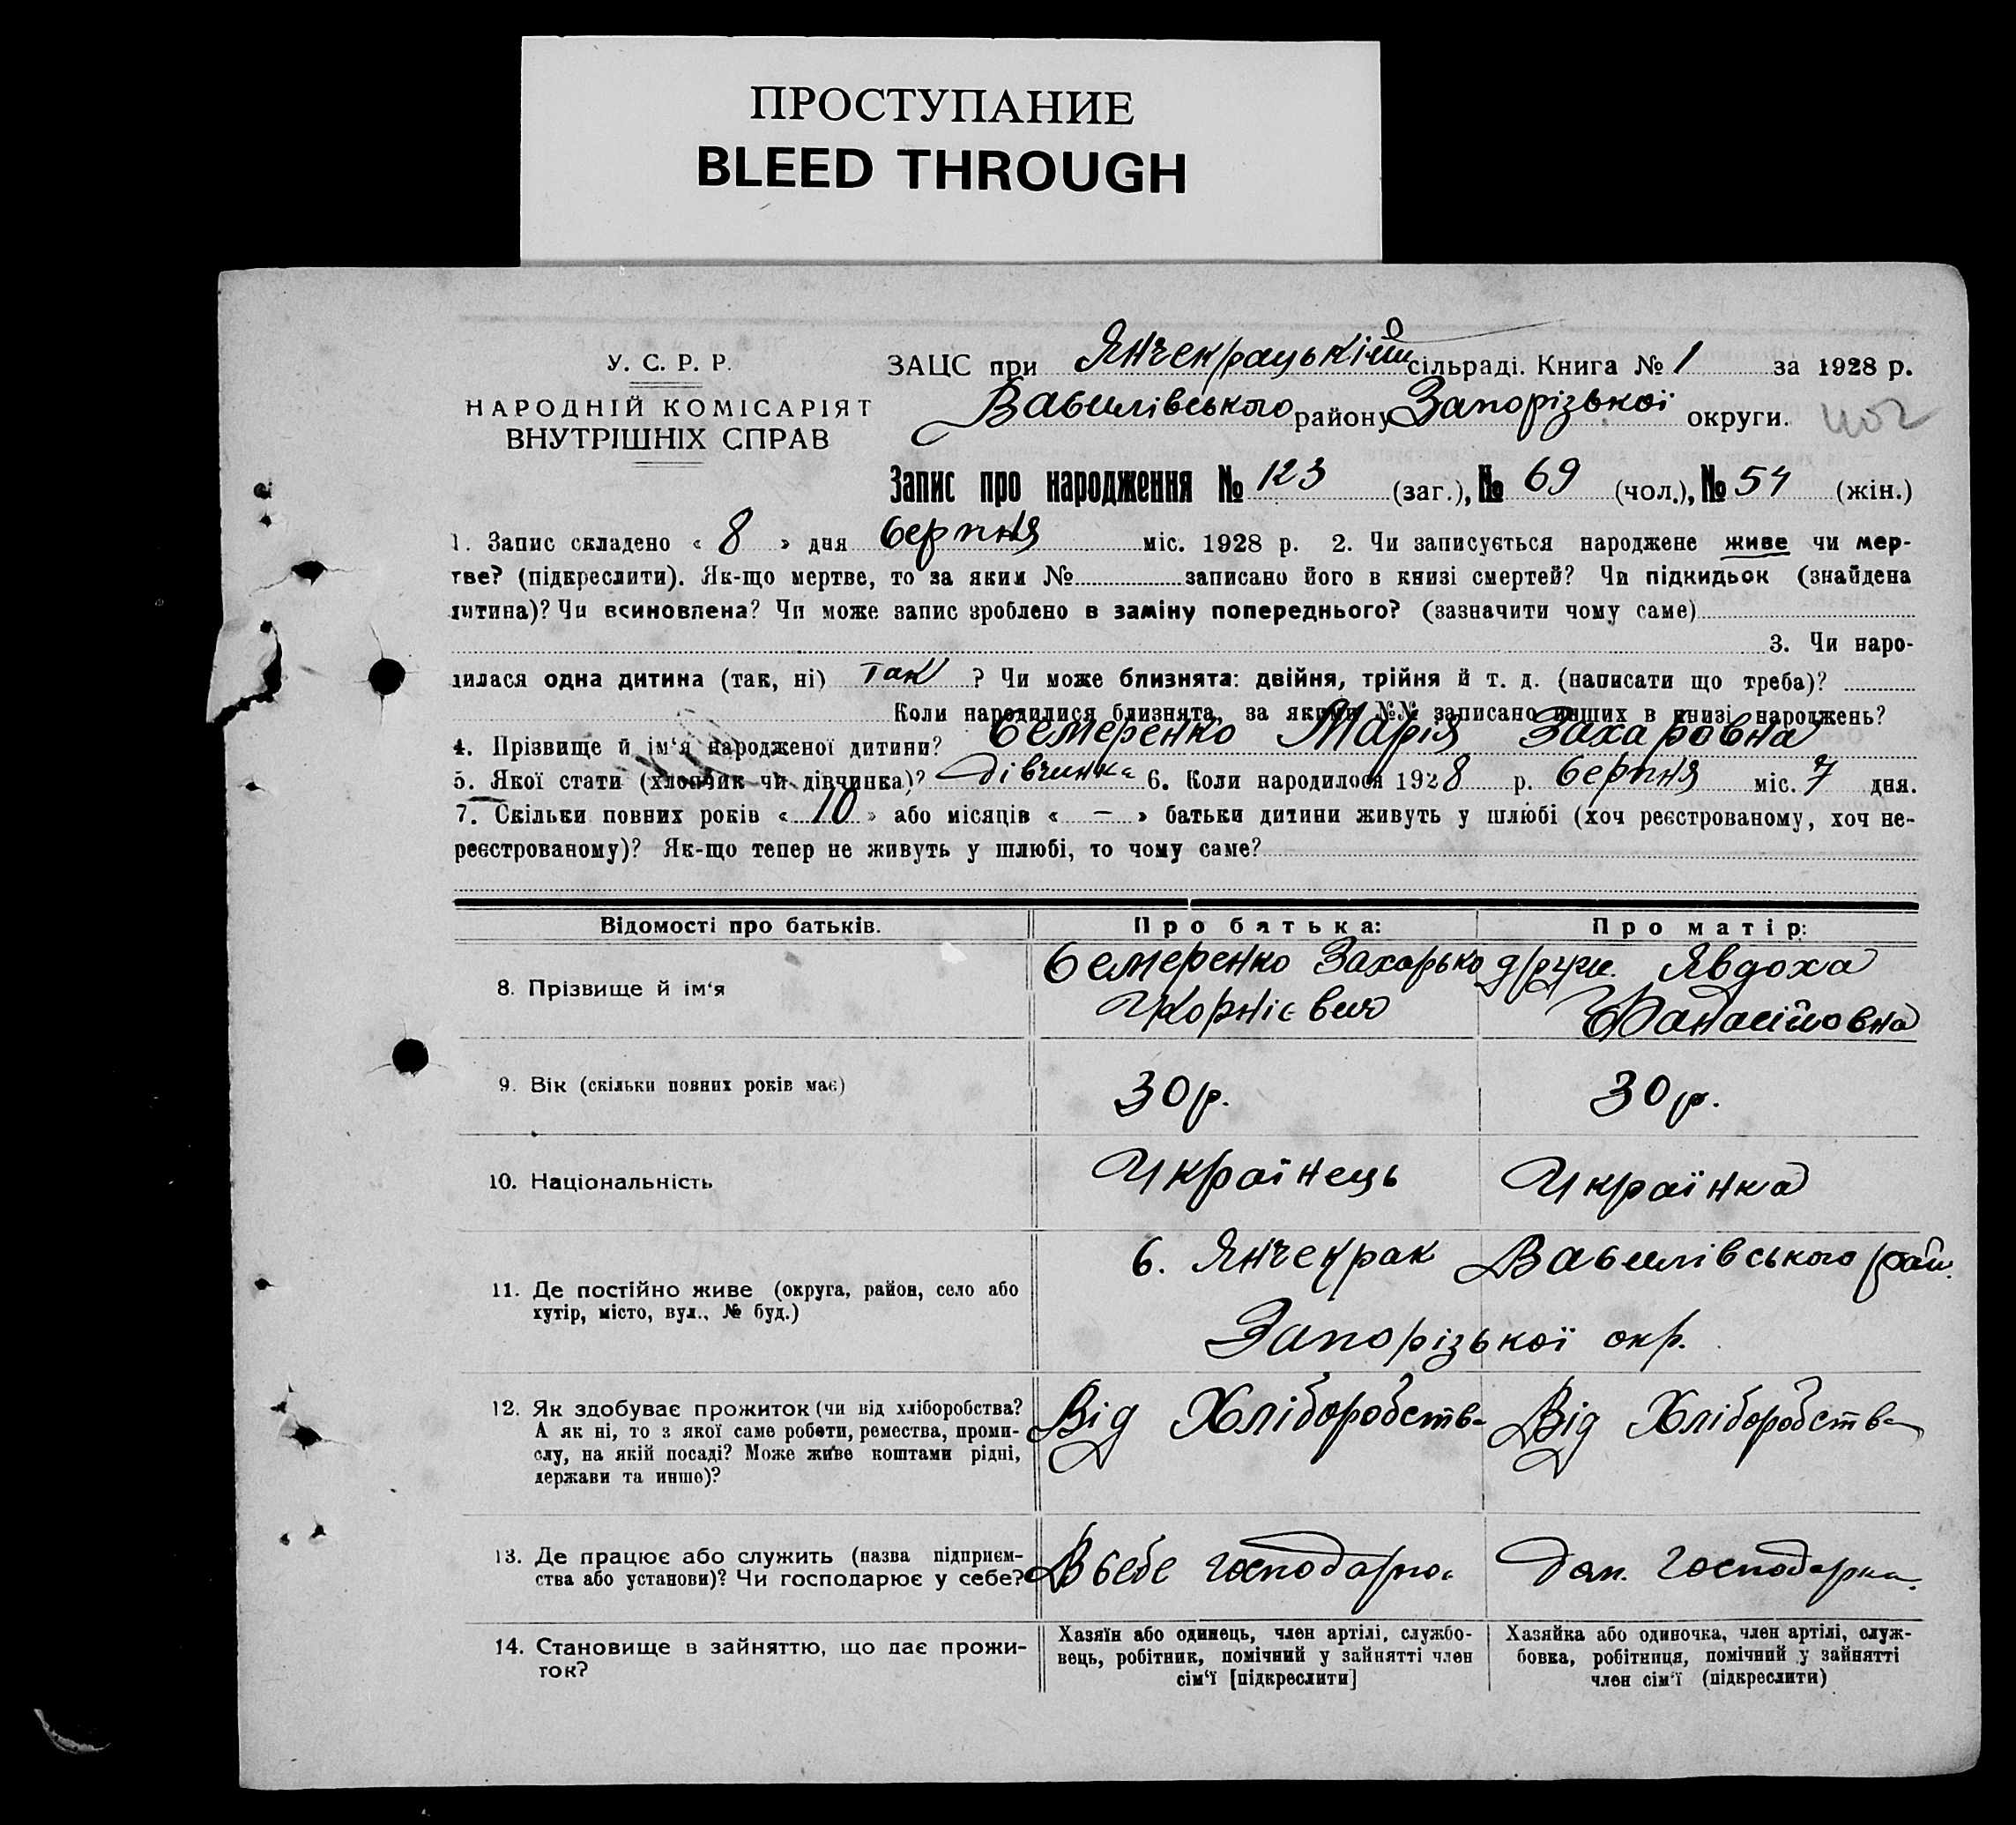 ПРОСТУПАНИЕ
BLEED THROUGH
У. С. Р. Р.
НАРОДНІЙ КОМІСАРІЯТ
ВНУТРІШНІХ СПРАВ
ЗАЦС при Янчекрацькій сільраді. Книга № 1 за 1928 р.
Василівського району Запорізької округи.
Запис про народження № 123 (заг.), № 69 (чол.), № 54 (жін.)
1. Запис складено « 8 » дня Серпня міс. 1928 р. 2. Чи записується народжене живе чи мер-
тве? (підкреслити). Як-що мертве, то за яким № записано його в книзі смертей? Чи підкидьок (знайдена
дитина)? Чи всиновлена? Чи може запис зроблено в заміну попереднього? (зазначити чому саме)
3. Чи наро-
дилася одна дитина (так, ні) так ? Чи може близнята: двійня, трійня й т. д. (написати що треба)?
Коли народилися близнята, за якими №№ записано инших в книзі народжень?
4. Прізвище й ім‘я народженої дитини? Семеренко Марія Захаровна
5. Якої стати (хлопчик чи дівчинка)? дівчинка 6. Коли народилося 1928 р. Серпня міс. 7 дня.
7. Скільки повних років « 10 » або місяців « — » батьки дитини живуть у шлюбі (хоч реєстрованому, хоч не-
реєстрованому)? Як-що тепер не живуть у шлюбі, то чому саме?
Відомості про батьків. Про батька: Про матір:
8. Прізвище й ім‘я
Семеренко Захарько
Корнієвич
друж. Явдоха
Панасівовна
9. Вік (скільки повних років має) 30 р. 30 р.
10. Національність Українець Українка
11. Де постійно живе (округа, район, село або
хутір, місто, вул., № буд.)
с. Янчекрак Василівського рай.
Запорізької окр.
12. Як здобуває прожиток (чи від хліборобства?
А як ні, то з якої саме роботи, ремества, проми-
слу, на якій посаді? Може живе коштами рідні,
держави та инше)?
Від Хліборобства Від Хліборобства
13. Де працює або служить (назва підприєм-
ства або установи)? Чи господарює у себе?
В себе господарює Дом. Господарка.
14. Становище в зайняттю, що дає прожи-
ток?
Хазяїн або одинець, член артілі, службо-
вець, робітник, помічний у зайнятті член
сім‘ї [підкреслити]
Хазяйка або одиночка, член артілі, служ-
бовка, робітниця, помічний у зайнятті
член сім‘ї (підкреслити)